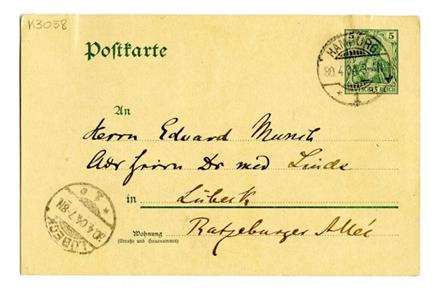 K3058
Postkarte
HAMBURG
30.4.04.
1
5
An
Herrn Eduard Munch
Adr Herrn Dr med Linde
in Lübeck
Ratzeburger Allee
Wohnung
(Straße und Hausnummer)
LÜBECK
30.4.04.7-8N